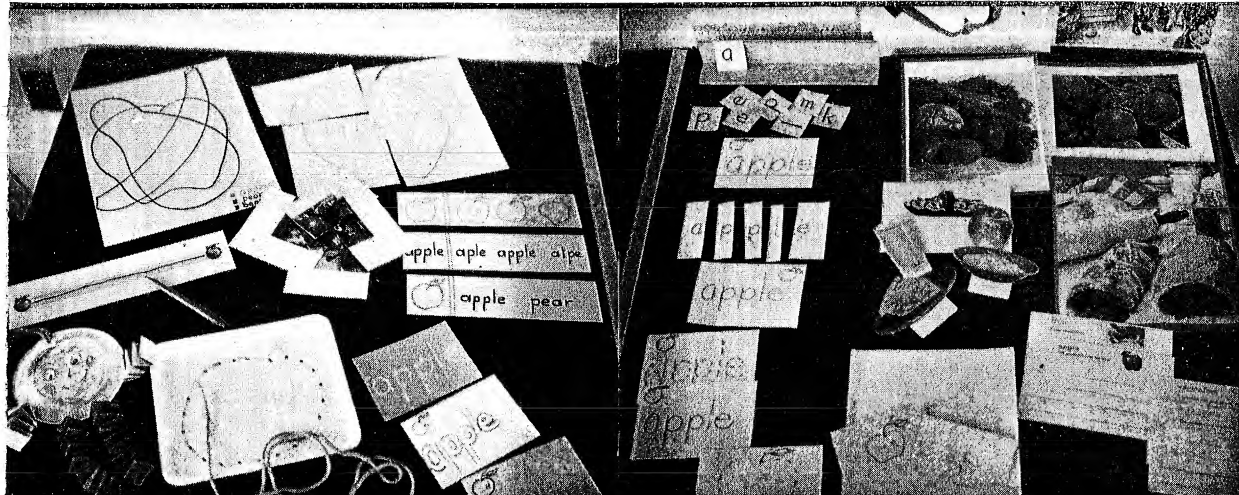 apple aple apple alpe
apple pear
apple
apple
apple
a
e o m
p e l k
apple
a p p l e
apple
apple
apple